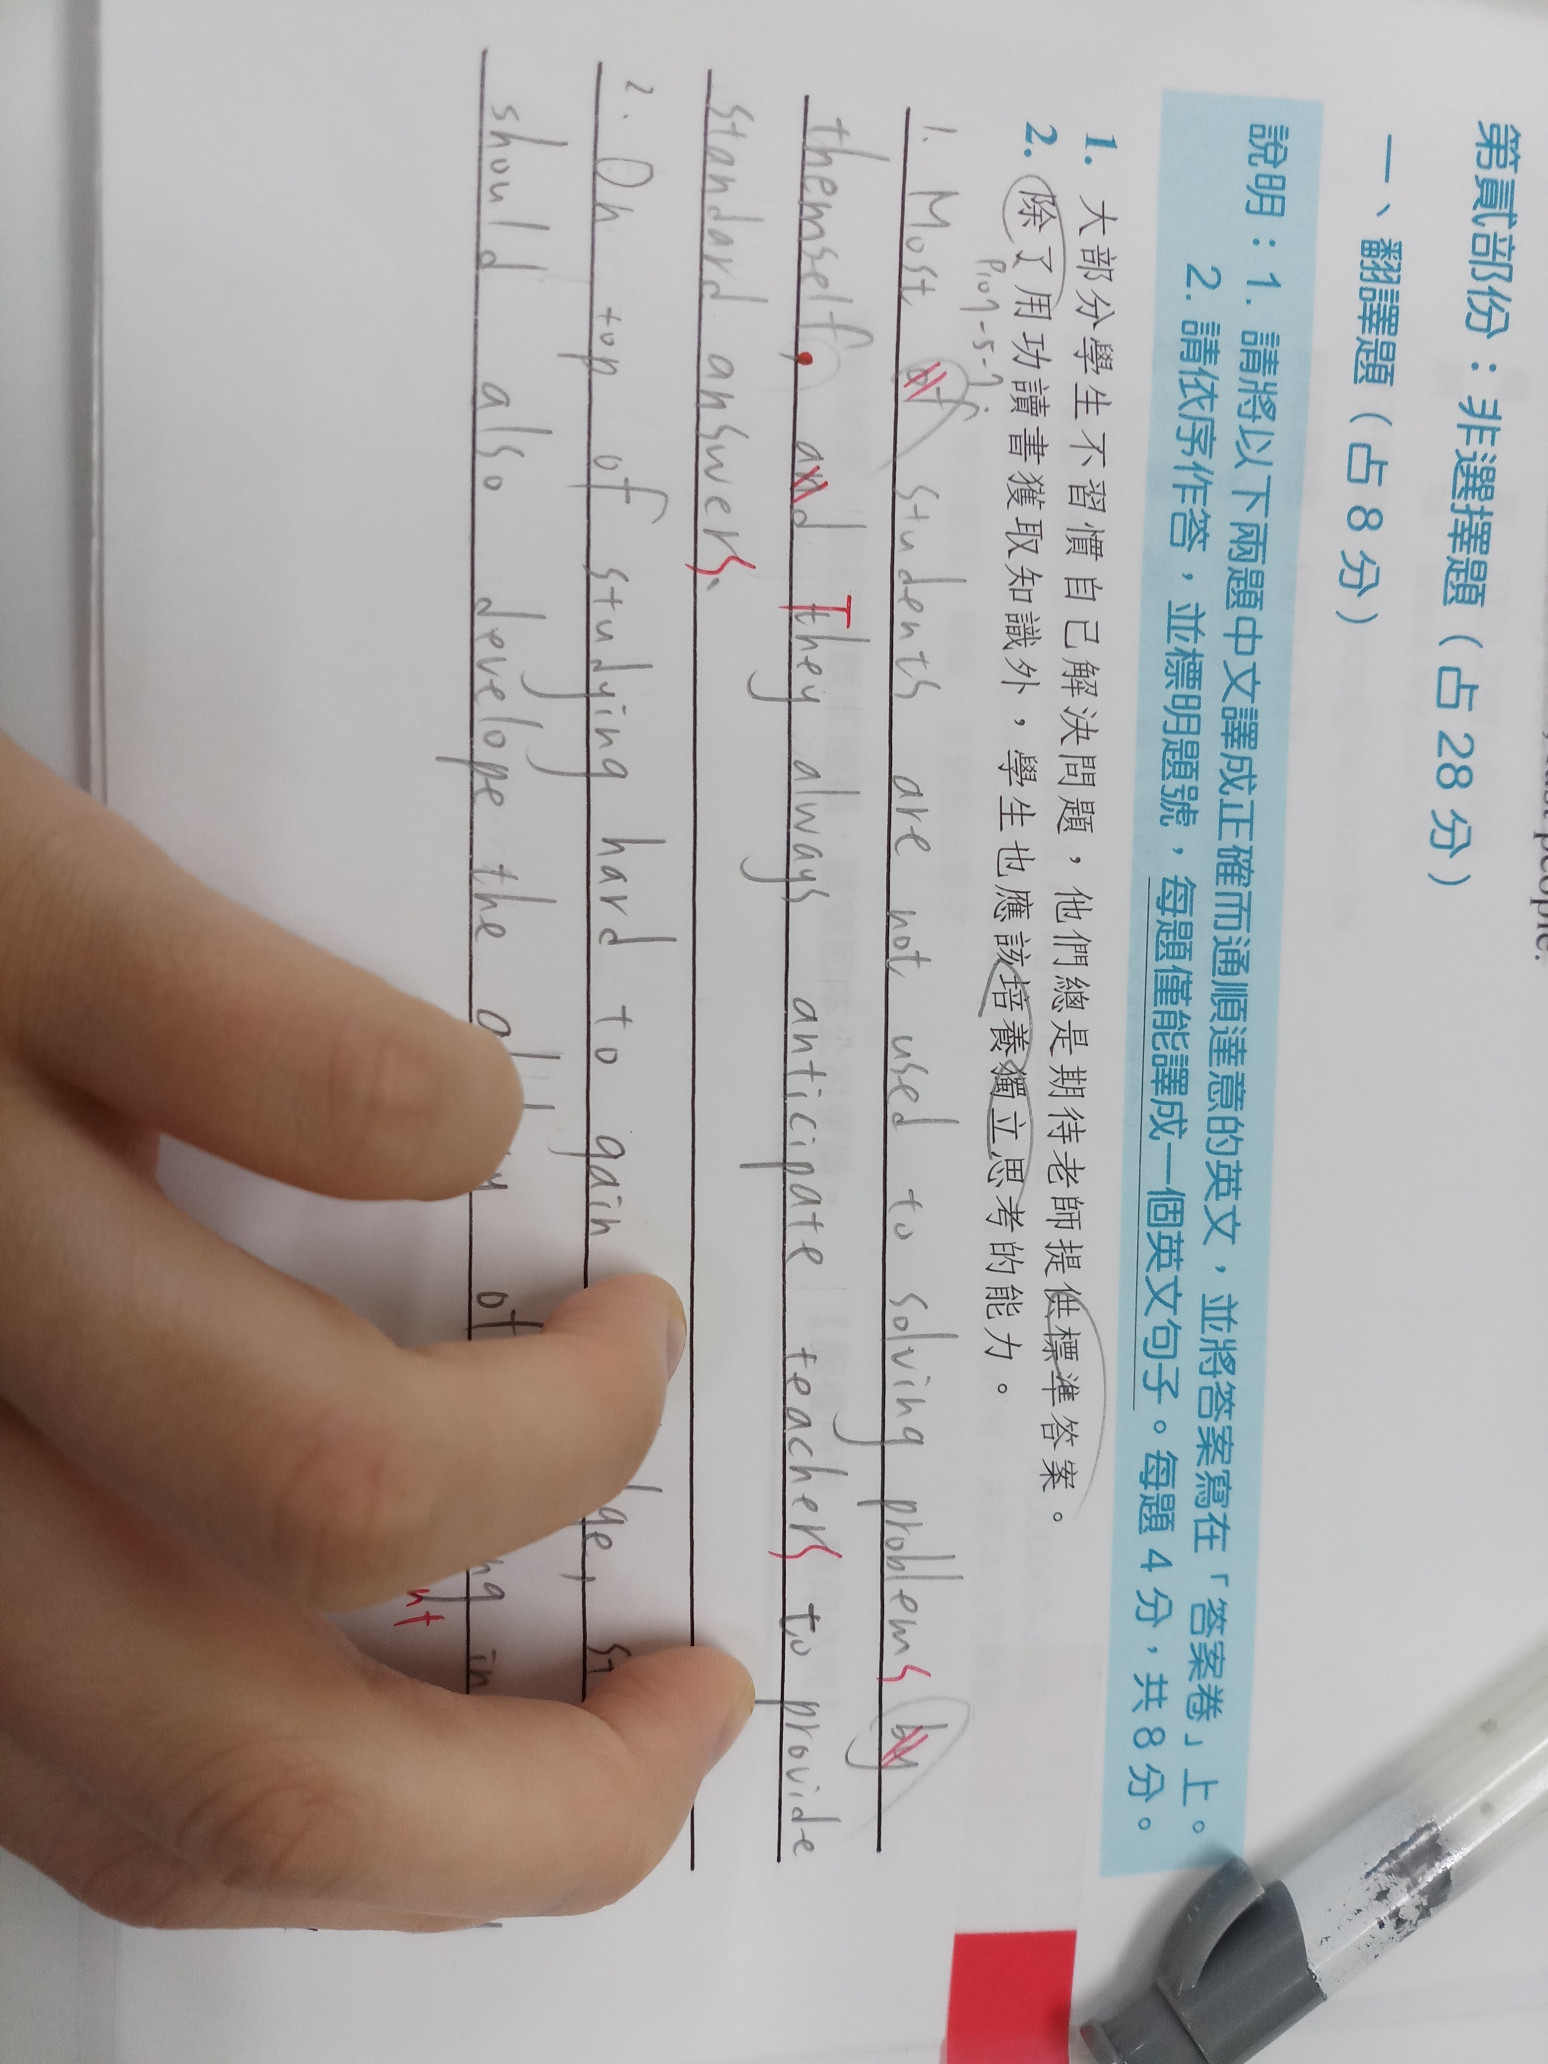 people.
第貳部份：非選擇題（占 28 分）
一、翻譯題（占 8 分）
說明：1. 請將以下兩題中文譯成正確而通順達意的英文，並將答案寫在「答案卷」上。
2. 請依序作答，並標明題號，每題僅能譯成一個英文句子。每題 4 分，共 8 分。
1. 大部分學生不習慣自己解決問題，他們總是期待老師提供標準答案。
2. 除了用功讀書獲取知識外，學生也應該培養獨立思考的能力。
1. Most of students are not used to solving problems by
themself, and They always anticipate teachers to provide
standard answers.
2. On top of studying hard to gain
should also develope the of in